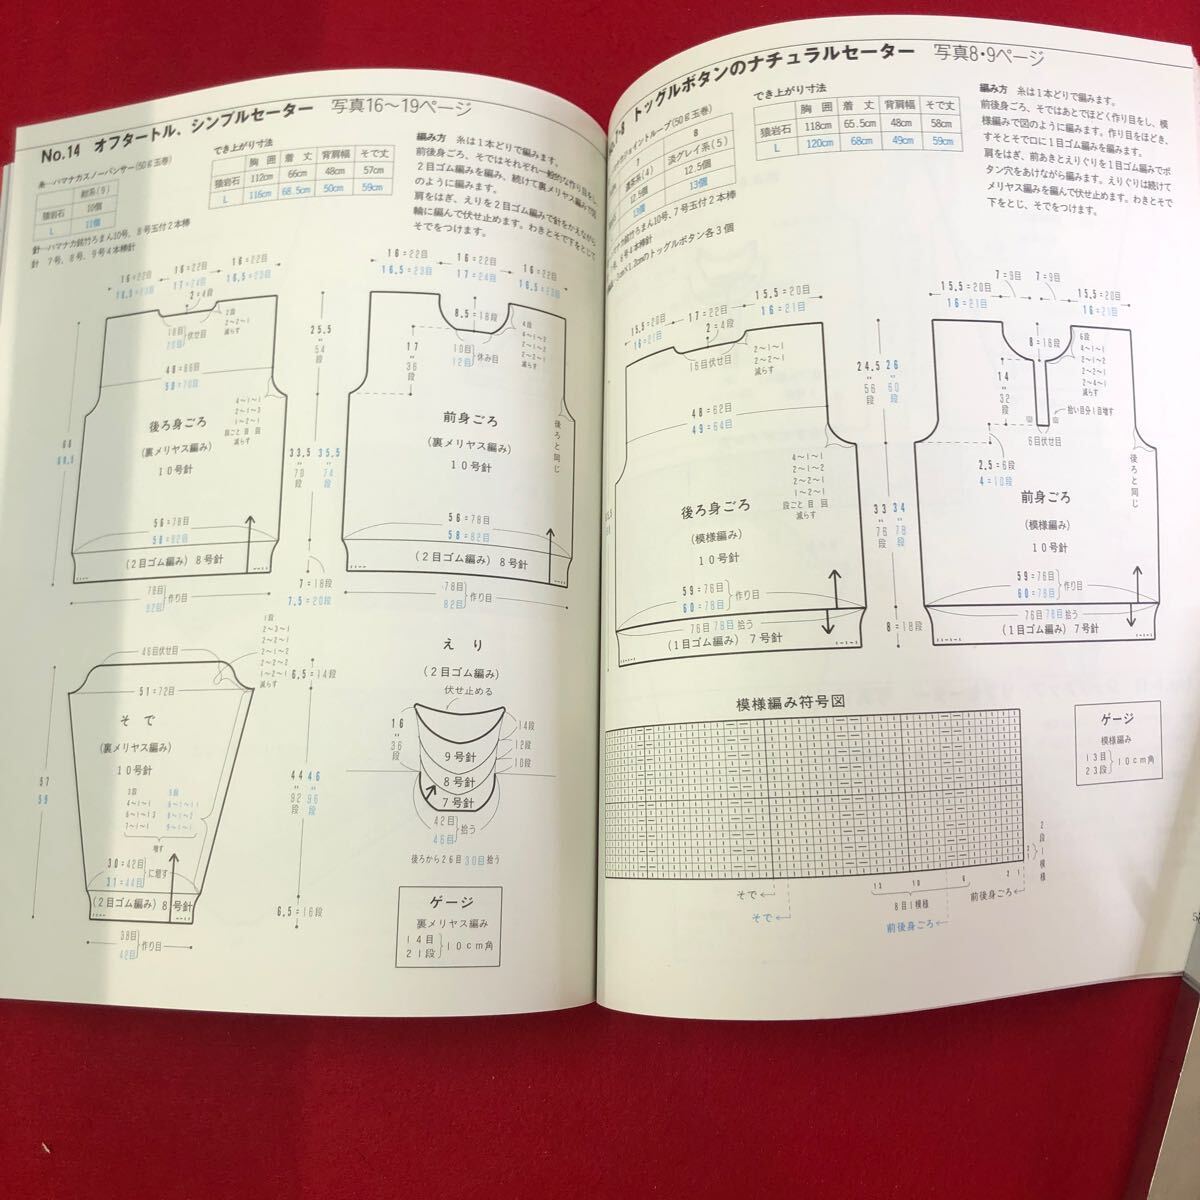 No.14 オフタートル、シンプルセーター 写真16〜19ページ
糸…ハマナカスノーパンサー(50g玉巻)
紺系(9)
猿岩石 10個
L 11個
針…ハマナカ銘竹ろまん10号、8号玉付2本棒
針 7号、8号、9号4本棒針
でき上がり寸法
胸囲 着丈 背肩幅 そで丈
猿岩石 112cm 66cm 48cm 57cm
L 116cm 68.5cm 50cm 59cm
編み方 糸は1本どりで編みます。
前後身ごろ、そではそれぞれ一般的な作り目をし、
2目ゴム編みを編み、続けて裏メリヤス編みで図
のように編みます。
肩をはぎ、えりを2目ゴム編みで針をかえながら
輪に編んで伏せ止めます。わきとそで下をとじて
そでをつけます。
16=22目 16=22目 16=22目
16.5=23目 17=24目 16.5=23目
2=4段
18目
20目
伏せ目
2段
2〜2〜1
減らす
48=66目
50=70目
4〜1〜1
2〜1〜3
1〜2〜1
段ごと 目 回
減らす
後ろ身ごろ
(裏メリヤス編み)
10号針
66
68.5
25.5
54段
33.5 35.5
70段 74段
56=78目
58=82目
(2目ゴム編み) 8号針
78目
82目
作り目
7=18段
7.5=20段
16=22目 16=22目 16=22目
16.5=23目 17=24目 16.5=23目
8.5=18段
17
36段
10目
12目
休み目
4段
4〜1〜1
2〜1〜2
減らす
前身ごろ
(裏メリヤス編み)
10号針
後ろと同じ
56=78目
58=82目
(2目ゴム編み) 8号針
78目
82目
作り目
46目伏せ目
1段
2〜3〜1
2〜2〜1
減らす
6.5=14段
51=72目
そで
(裏メリヤス編み)
10号針
57
59
44 46
92段 96段
増す
30=42目
31=44目
に増す
(2目ゴム編み) 8号針
6.5=16段
38目
42目
作り目
えり
(2目ゴム編み)
伏せ止める
16
36段
14段
12段
10段
9号針
8号針
7号針
42目
46目
拾う
後ろから26目 30目拾う
ゲージ
裏メリヤス編み
14目
21段
10cm角
トッグルボタンのナチュラルセーター 写真8・9ページ
7 8
濃茶系(4) 淡グレイ系(5)
12.5個 12.5個
13個 13個
でき上がり寸法
胸囲 着丈 背肩幅 そで丈
猿岩石 118cm 65.5cm 48cm 58cm
L 120cm 68cm 49cm 59cm
編み方 糸は1本どりで編みます。
前後身ごろ、そではあとでほどく作り目をし、模
様編みで図のように編みます。作り目をほどき、
すそとそで口に1目ゴム編みを編みます。
肩をはぎ、前あきとえりぐりを1目ゴム編みでボ
タン穴をあけながら編みます。えりぐりは続けて
メリヤス編みを編んで伏せ止めます。わきとそで
下をとじ、そでをつけます。
15.5=20目 17=22目 15.5=20目
16=21目 16=21目
2=4段
16目伏せ目
2〜1〜1
2〜2〜1
減らす
48=62目
49=64目
4〜1〜1
2〜1〜2
1〜2〜1
段ごと 目 回
減らす
後ろ身ごろ
(模様編み)
10号針
24.5 26
56段 60段
33 34
76段 78段
59=76目
60=78目
作り目
76目 78目拾う
(1目ゴム編み) 7号針
8=18段
7=9目 7=9目
15.5=20目 15.5=20目
16=21目 16=21目
8=16段
6段
4〜1〜1
2〜1〜2
減らす
14
32段
拾い目分1目増す
6目伏せ目
2.5=6段
4=10段
前身ごろ
(模様編み)
10号針
後ろと同じ
59=76目
60=78目
作り目
76目 78目拾う
(1目ゴム編み) 7号針
模様編み符号図
2段1模様
そで←
そで←
12 10 6 2 1
8目1模様
前後身ごろ←
前後身ごろ←
ゲージ
模様編み
13目
23段
10cm角